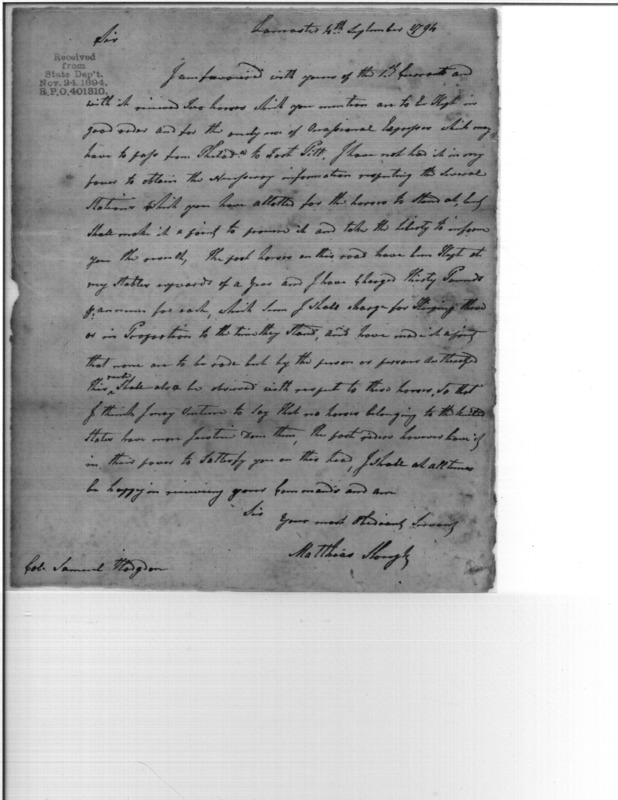 Lancaster 4th September 1794
Sir
Received
from
State Dep't.
Nov. 24. 1894.
R.P.O. 401310.
I am favoured with yours of the 1st Current and
with it received two horses which you mention are to be Kept in
good order and for the only use of Occasional Expresses which may
have to pass from Philada to Fort Pitt. I have not had it in my
power to obtain the Necessary information respecting the Several
Stations which you have allotted for the horses to Stand at, but
Shall make it a point to procure it and take the liberty to inform
you the result, The post horses on this road have been Kept at
my Stables upwards of a Year and I have Charged thirty Pounds
p annum for each, which Sum I Shall charge for Keeping these
or in Proportion to the time they Stand, and have made it a point
that none are to be rode but by the person or persons Authorised
this rule Shall also be observed with respect to these horses, So that
I think I may Venture to Say that no horses belonging to the United
States have more Justice Done them, The post riders however have it
in their power to Satisfy you on this head I Shall at all times
be happy in receiving your Commands and am
Sir
Your most Obedient Servant
Matthias Slough
Col. Samuel Hodgdon